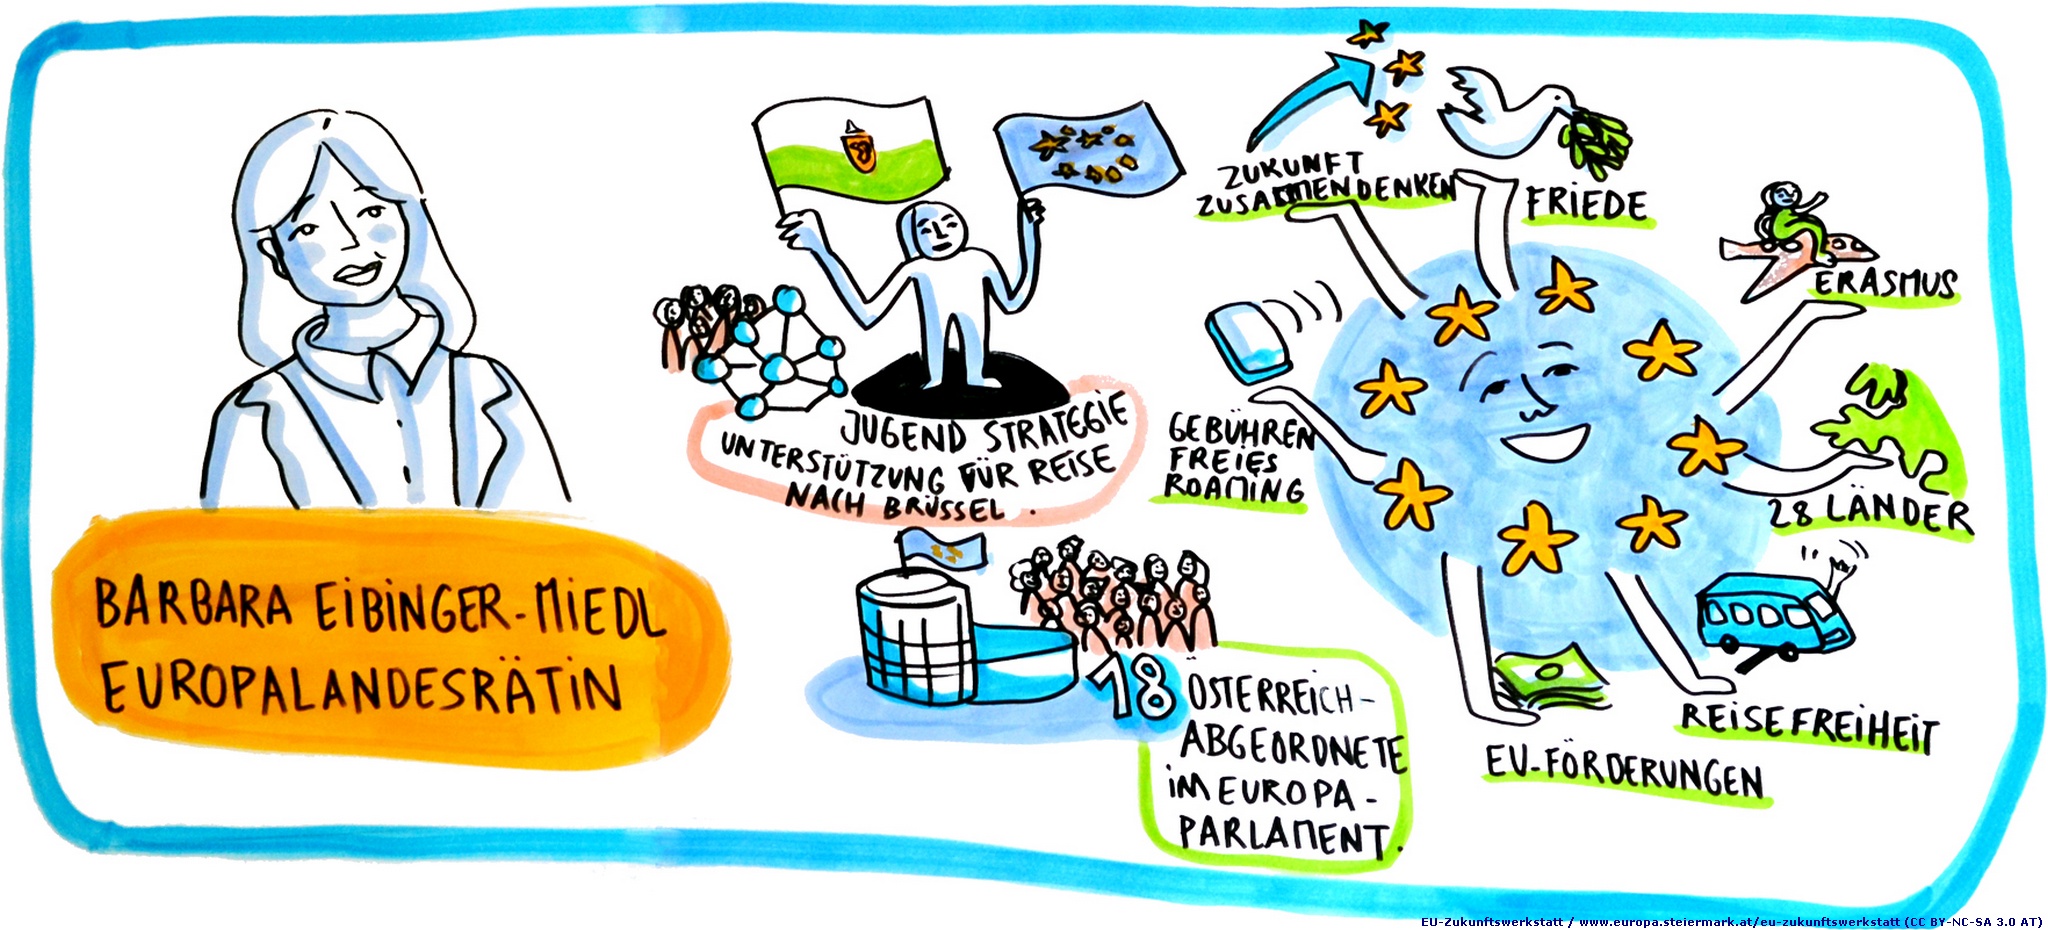 BARBARA EIBINGER-MIEDL
EUROPALANDESRÄTIN
JUGEND STRATEGIE
UNTERSTÜTZUNG FÜR REISE
NACH BRÜSSEL.
18 ÖSTERREICH-
ABGEORDNETE
IM EUROPA-
PARLAMENT.
ZUKUNFT
ZUSAMMENDENKEN
FRIEDE
ERASMUS
GEBÜHREN
FREIES
ROAMING
28 LÄNDER
REISEFREIHEIT
EU-FÖRDERUNGEN
EU-Zukunftswerkstatt / www.europa.steiermark.at/eu-zukunftswerkstatt (CC BY-NC-SA 3.0 AT)